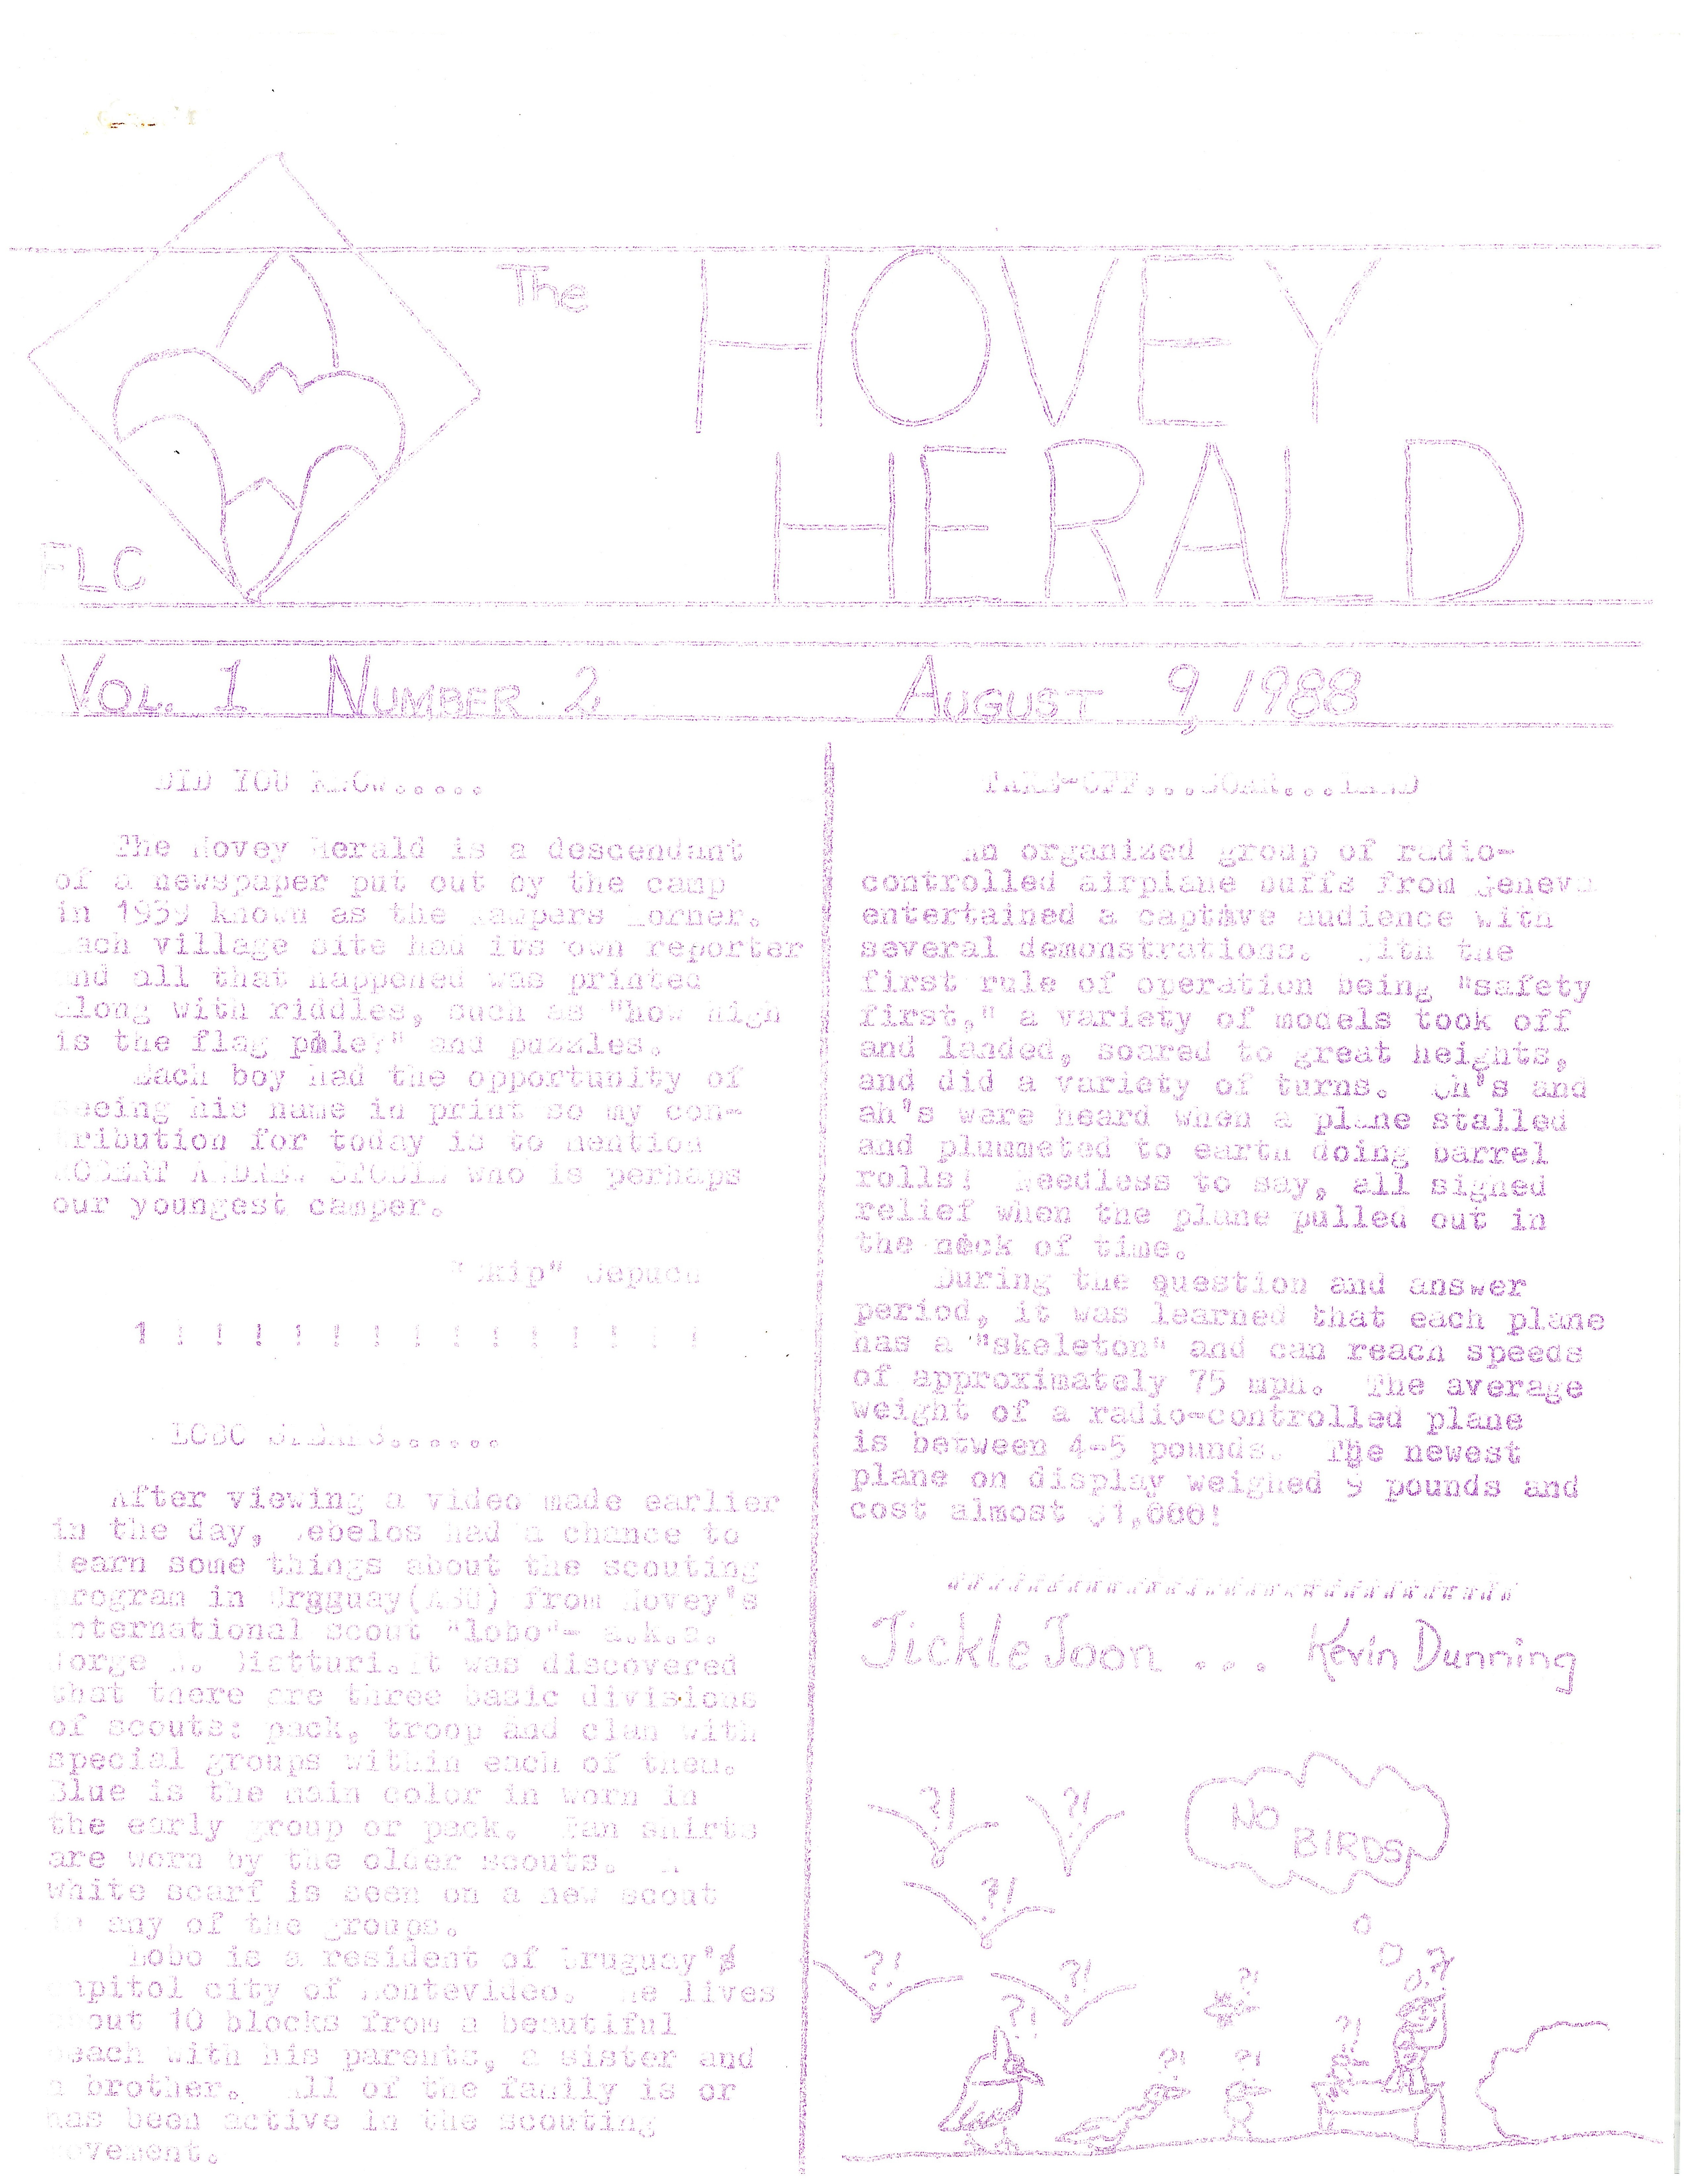 The HOVEY
HERALD
FLC
VOL. 1 NUMBER 2 AUGUST 9, 1988
DID YOU KNOW.....
The Hovey Herald is a descendant
of a newspaper put out by the camp
in 1959 known as the Campers Corner.
Each village site had its own reporter
and all that happened was printed
along with riddles, such as "how high
is the flag pole?" and puzzles.
Each boy had the opportunity of
seeing his name in print so my con-
tribution for today is to mention
ROBERT who is perhaps
our youngest camper.
"Skip"
! ! ! ! ! ! ! ! ! ! ! ! ! ! !
LOBO SPEAKS......
After viewing a video made earlier
in the day, Webelos had a chance to
learn some things about the scouting
program in Urgguay(ASU) from Hovey's
international scout "lobo"- a.k.a.
Jorge It was discovered
that there are three basic divisions
of scouts: pack, troop and clan with
special groups within each of them.
Blue is the main color in worn in
the early group or pack. Tan shirts
are worn by the older scouts. A
white scarf is seen on a new scout
in any of the groups.
Lobo is a resident of Uruguay's
capitol city of Montevideo. He lives
about 10 blocks from a beautiful
beach with his parents, a sister and
a brother. All of the family is or
has been active in the scouting
movement.
TAKE-OFF...SOAR...LAND
An organized group of radio-
controlled airplane buffs from Geneva
entertained a captive audience with
several demonstrations. With the
first rule of operation being "safety
first," a variety of models took off
and landed, soared to great heights,
and did a variety of turns. Oh's and
ah's were heard when a plane stalled
and plummeted to earth doing barrel
rolls! Needless to say, all signed
relief when the plane pulled out in
the nick of time.
During the question and answer
period, it was learned that each plane
has a "skeleton" and can reach speeds
of approximately 75 mph. The average
weight of a radio-controlled plane
is between 4-5 pounds. The newest
plane on display weighed 9 pounds and
cost almost $1,000!
Tickle Toon ... Kevin Dunning
?! ?! NO
BIRDS
?!
?! ?! ?! ?!
?! ?!
?! ?!